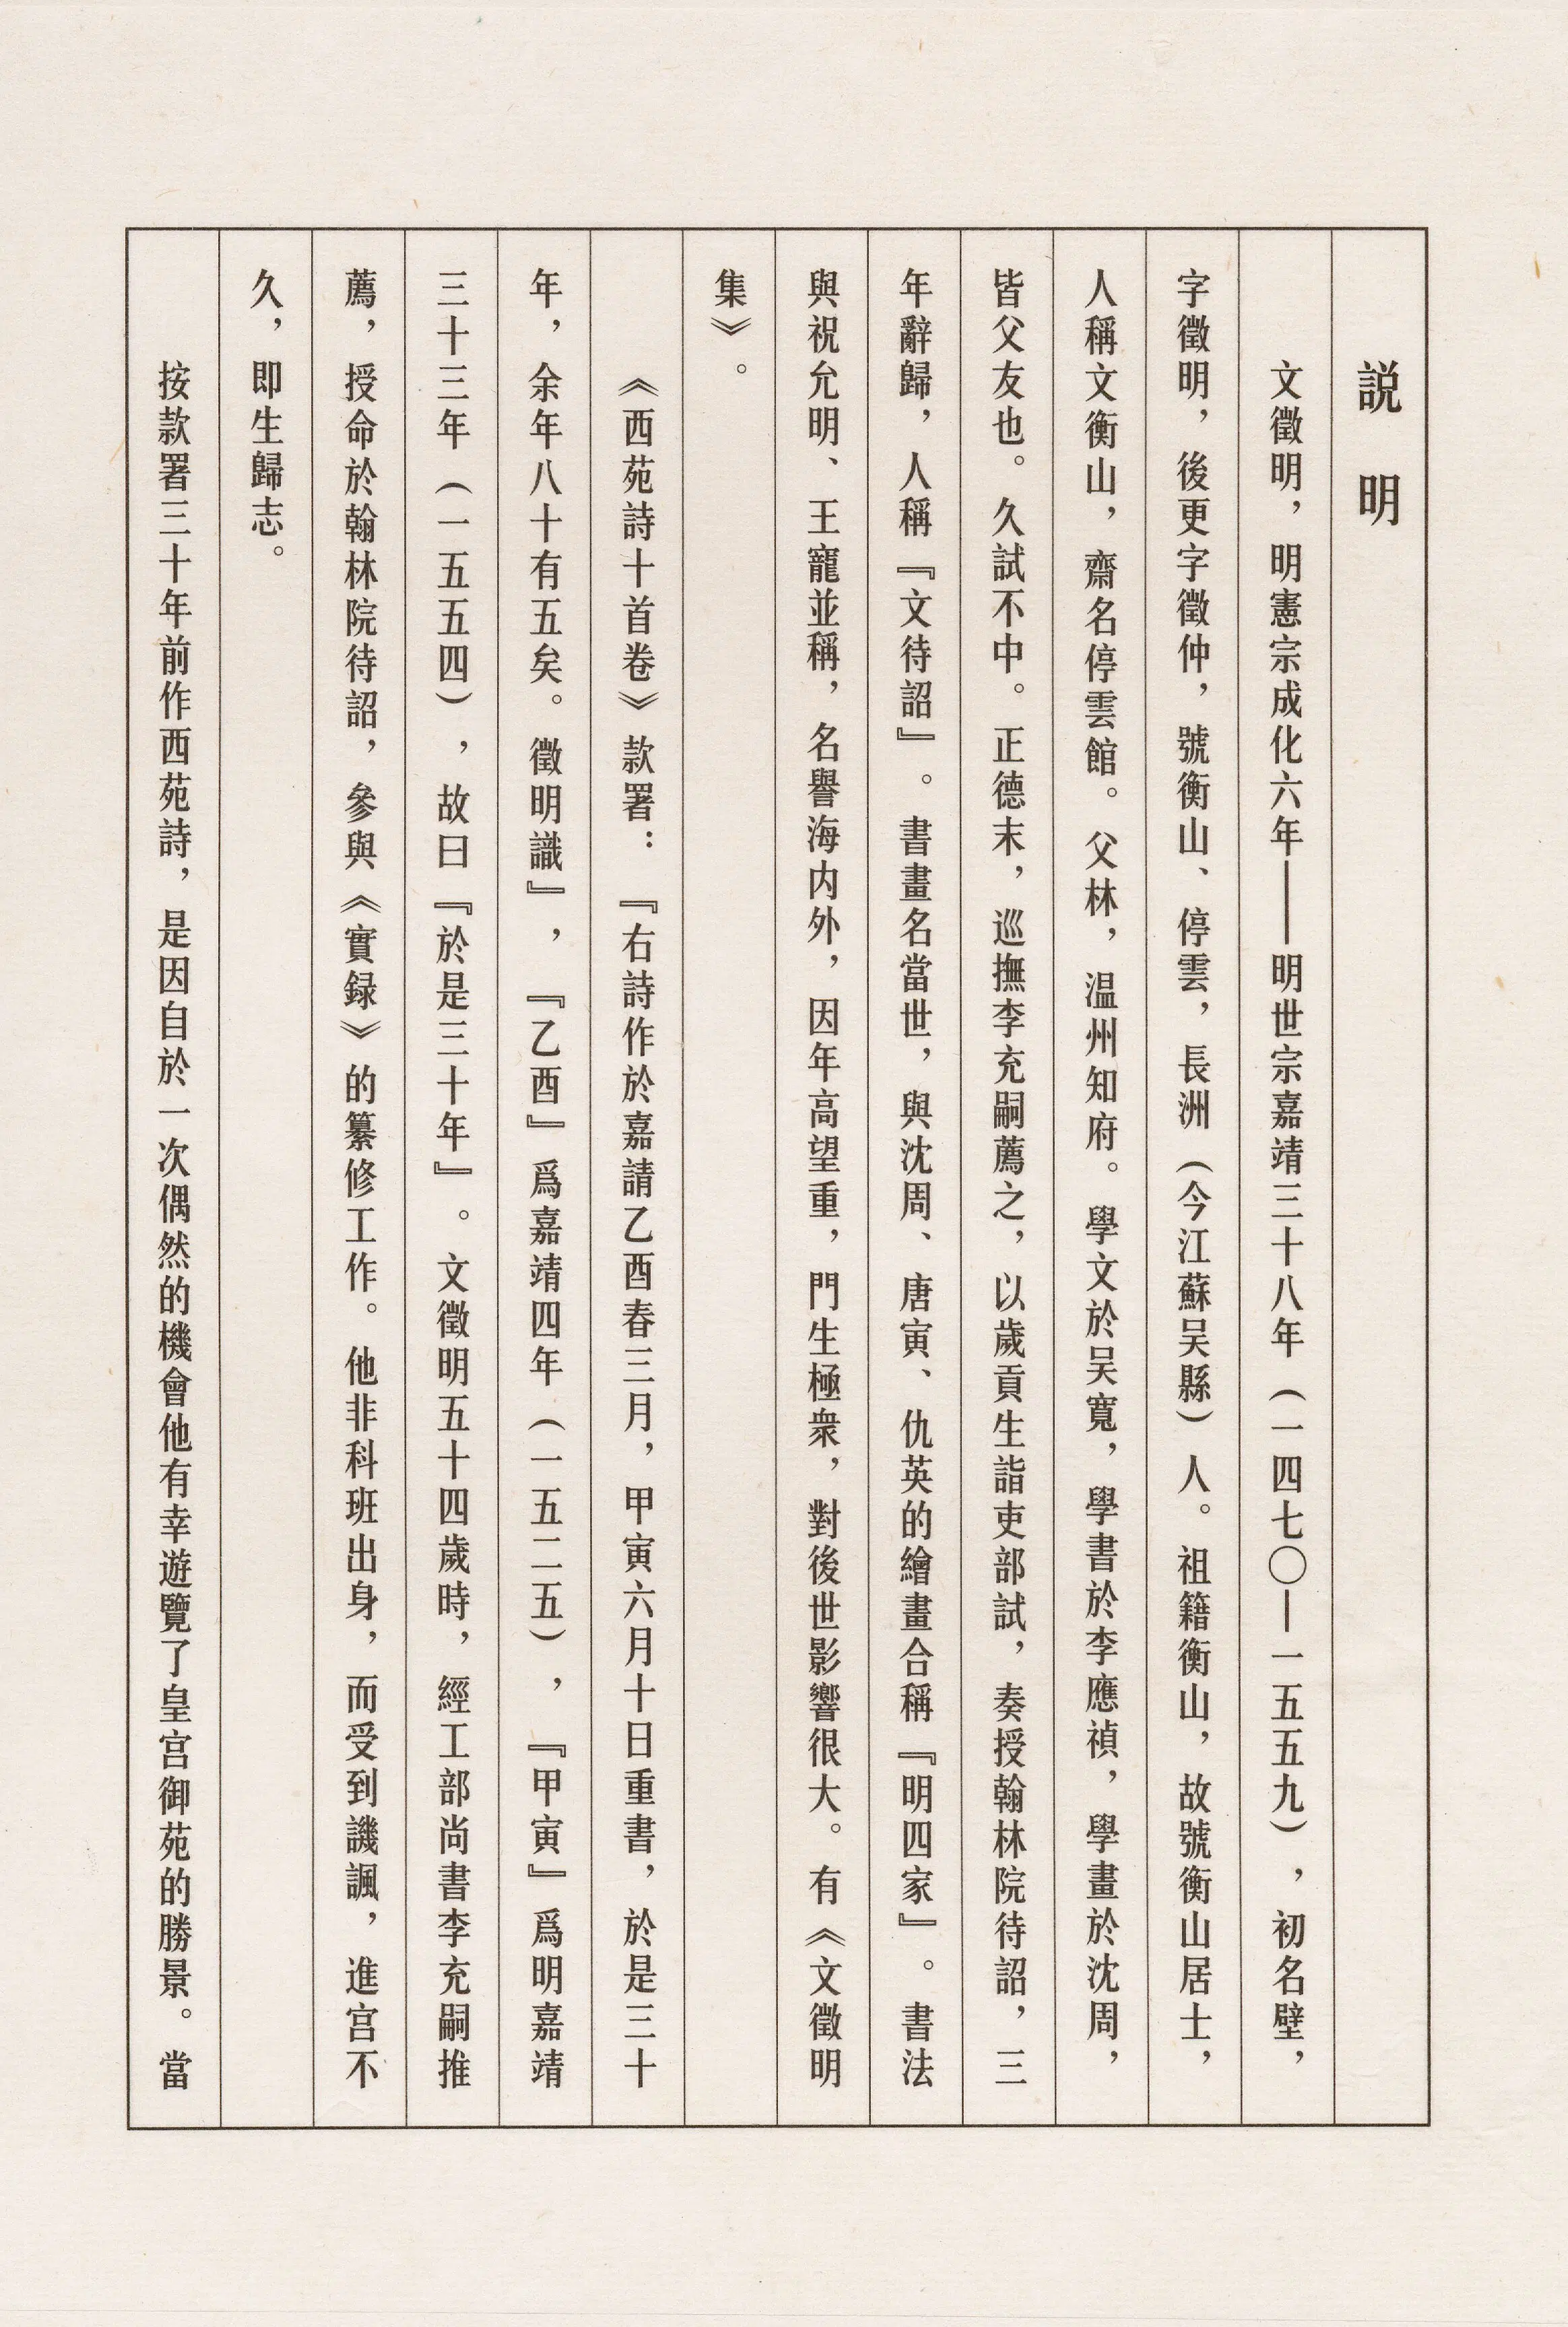 説明
文徵明，明憲宗成化六年——明世宗嘉靖三十八年（一四七〇—一五五九），初名壁，
字徵明，後更字徵仲，號衡山、停雲，長洲（今江蘇吴縣）人。祖籍衡山，故號衡山居士，
人稱文衡山，齋名停雲館。父林，温州知府。學文於吴寬，學書於李應禎，學畫於沈周，
皆父友也。久試不中。正德末，巡撫李充嗣薦之，以歲貢生詣吏部試，奏授翰林院待詔，三
年辭歸，人稱『文待詔』。書畫名當世，與沈周、唐寅、仇英的繪畫合稱『明四家』。書法
與祝允明、王寵並稱，名譽海内外，因年高望重，門生極衆，對後世影響很大。有《文徵明
集》。
《西苑詩十首卷》款署：『右詩作於嘉請乙酉春三月，甲寅六月十日重書，於是三十
年，余年八十有五矣。徵明識』，『乙酉』爲嘉靖四年（一五二五），『甲寅』爲明嘉靖
三十三年（一五五四），故曰『於是三十年』。文徵明五十四歲時，經工部尚書李充嗣推
薦，授命於翰林院待詔，參與《實録》的纂修工作。他非科班出身，而受到譏諷，進宫不
久，即生歸志。
按款署三十年前作西苑詩，是因自於一次偶然的機會他有幸遊覽了皇宫御苑的勝景。當